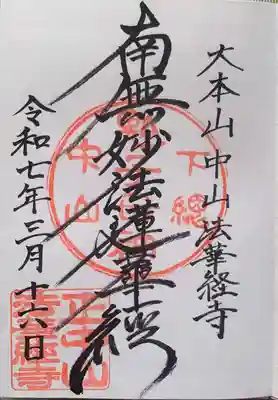 大本山中山法華経寺
南無妙法蓮華経
令和七年三月十六日
下總
中山
正中山
法華経寺